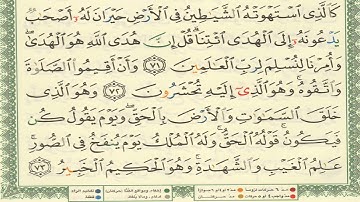 كَٱلَّذِى ٱسْتَهْوَتْهُ ٱلشَّيَٰطِينُ فِى ٱلْأَرْضِ حَيْرَانَ لَهُۥٓ أَصْحَٰبٌ
يَدْعُونَهُۥٓ إِلَى ٱلْهُدَى ٱئْتِنَا ۗ قُلْ إِنَّ هُدَى ٱللَّهِ هُوَ ٱلْهُدَىٰ ۖ
وَأُمِرْنَا لِنُسْلِمَ لِرَبِّ ٱلْعَٰلَمِينَ ٧١ وَأَنْ أَقِيمُوا۟ ٱلصَّلَوٰةَ
وَٱتَّقُوهُ ۚ وَهُوَ ٱلَّذِىٓ إِلَيْهِ تُحْشَرُونَ ٧٢ وَهُوَ ٱلَّذِى
خَلَقَ ٱلسَّمَٰوَٰتِ وَٱلْأَرْضَ بِٱلْحَقِّ ۖ وَيَوْمَ يَقُولُ كُن
فَيَكُونُ ۚ قَوْلُهُ ٱلْحَقُّ ۚ وَلَهُ ٱلْمُلْكُ يَوْمَ يُنفَخُ فِى ٱلصُّورِ ۚ
عَٰلِمُ ٱلْغَيْبِ وَٱلشَّهَٰدَةِ ۚ وَهُوَ ٱلْحَكِيمُ ٱلْخَبِيرُ ٧٣